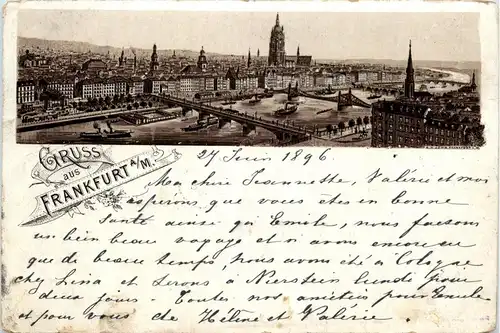 GRUSS
AUS
FRANKFURT A/M.
27 Juin 1896
Ma chère Jeannette, Valérie et moi
espérons que vous êtes en bonne
santé ainsi qu' Emile, nous faisons
un bien beau voyage et si avons encore
que de beau temps, nous avons été à Cologne
chez Lina et serons à Nierstein lundi pour
deux jours. Toutes nos amitiés pour Emile
et pour vous de Hélène et Valérie